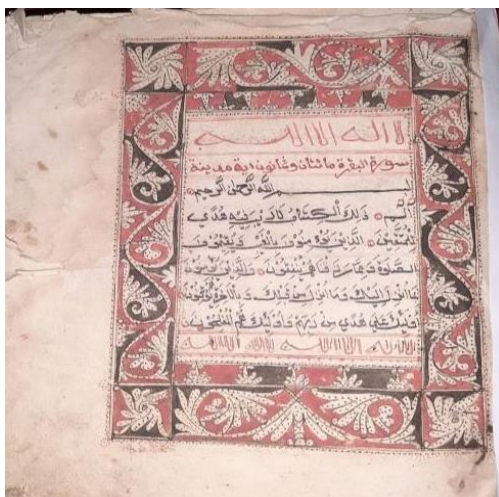 لا اله الا الله
سورة البقرة مائتان وثمانون اية مدينة
بسم الله الرحمن الرحيم
الم ذلك الكتاب لا ريب فيه هدي
للمتقين الذين يؤمنون بالغيب ويقيمون
الصلوة ومما رزقناهم ينفقون والذين يؤمنون
بما انزل اليك وما انزل من قبلك وبالاخرة هم يوقنون
اولئك علي هدي من ربهم واولئك هم المفلحون
لا اله الا الله لا اله الا الله